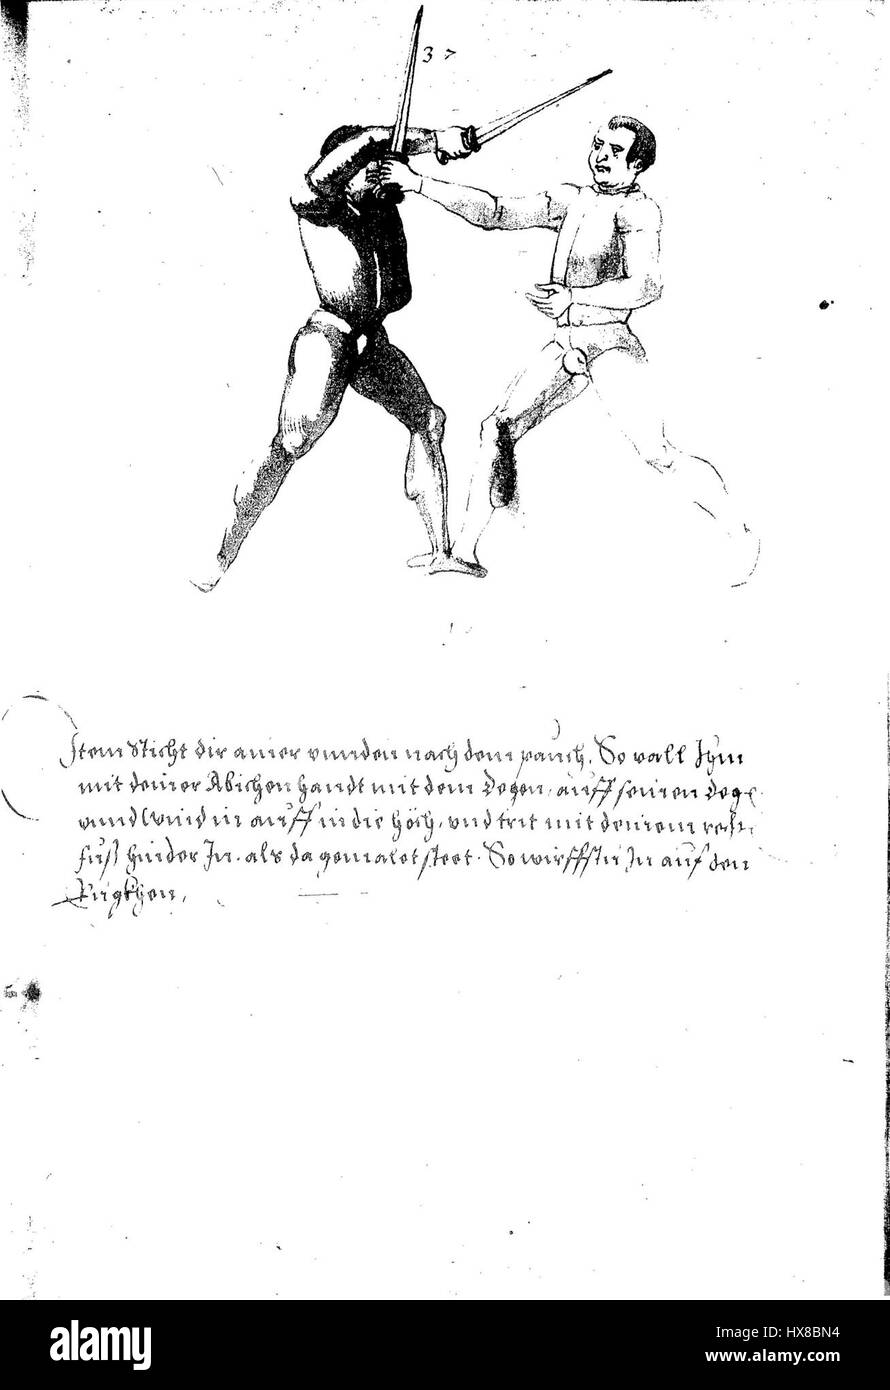 37
Item Sticht dir ainer vnnden nach dem pauch, So vall Ihm
mit deiner Abichen handt mit dem Degen, auff seinen Deg
vnnd Wind in auff in die höch, vnd trit mit deinem recht
fuß hinder In. als da gemalet steet. So wirffstu In auf den
Rugkhen,
alamy
Image ID: HX8BN4
www.alamy.com